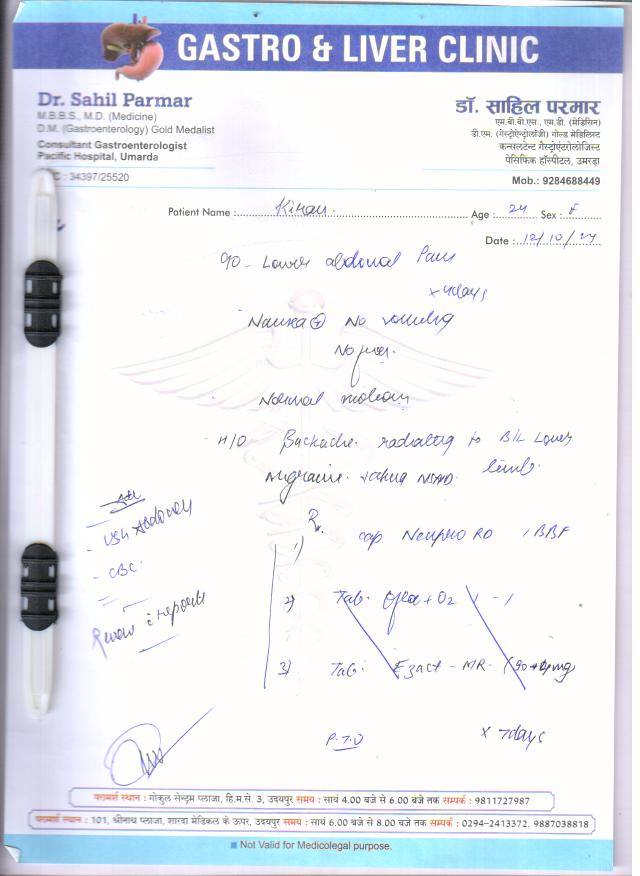 GASTRO & LIVER CLINIC
Dr. Sahil Parmar
M.B.B.S., M.D. (Medicine)
D.M. (Gastroenterology) Gold Medalist
Consultant Gastroenterologist
Pacific Hospital, Umarda
: 34397/25520
डॉ. साहिल परमार
एम.बी.बी.एस., एम.डी. (मेडिसिन)
डी.एम. (गेस्ट्रोऐन्ट्रोलॉजी) गोल्ड मेडलिस्ट
कन्सलटेन्ट गैस्ट्रोएंटरोलोजिस्ट
पेसिफिक हॉस्पीटल, उमरड़ा
Mob.: 9284688449
Patient Name : Kiran. Age : 24 Sex : F
Date : 12/10/24
Lower abdominal Pain
x 4days
Nausea + No vomiting
No fever.
Normal motion
H/O Backache radiating to B/L Lower
limb.
Migraine taking NSAID.
- USG Abdomen
- CBC.
Review reports
Rx
1) cap Neupro RD 1 BBF
2) Tab. Oflox + O2 1 - 1
3) Tab. Ezact - MR. (90+4)mg
P.T.O x 7days
परामर्श स्थान : गोकुल सेन्ट्रम प्लाजा, हि.म.से. 3, उदयपुर समय : सायं 4.00 बजे से 6.00 बजे तक सम्पर्क : 9811727987
परामर्श स्थान : 101, श्रीनाथ प्लाजा, शारदा मेडिकल के ऊपर, उदयपुर समय : सायं 6.00 बजे से 8.00 बजे तक सम्पर्क : 0294-2413372, 9887038818
Not Valid for Medicolegal purpose.